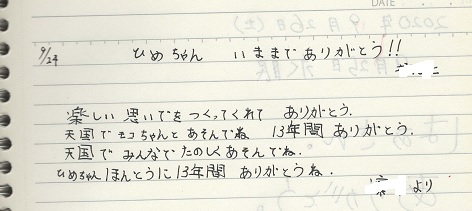 DATE
9/24 ひめちゃん いままで ありがとう!!
楽しい 思いでを つくってくれて ありがとう.
天国で モコちゃんと あそんでね. 13年間 ありがとう.
天国で みんなで たのしく あそんでね.
ひめちゃん ほんとうに 13年間 ありがとうね.
より
2020年9月26日(土)